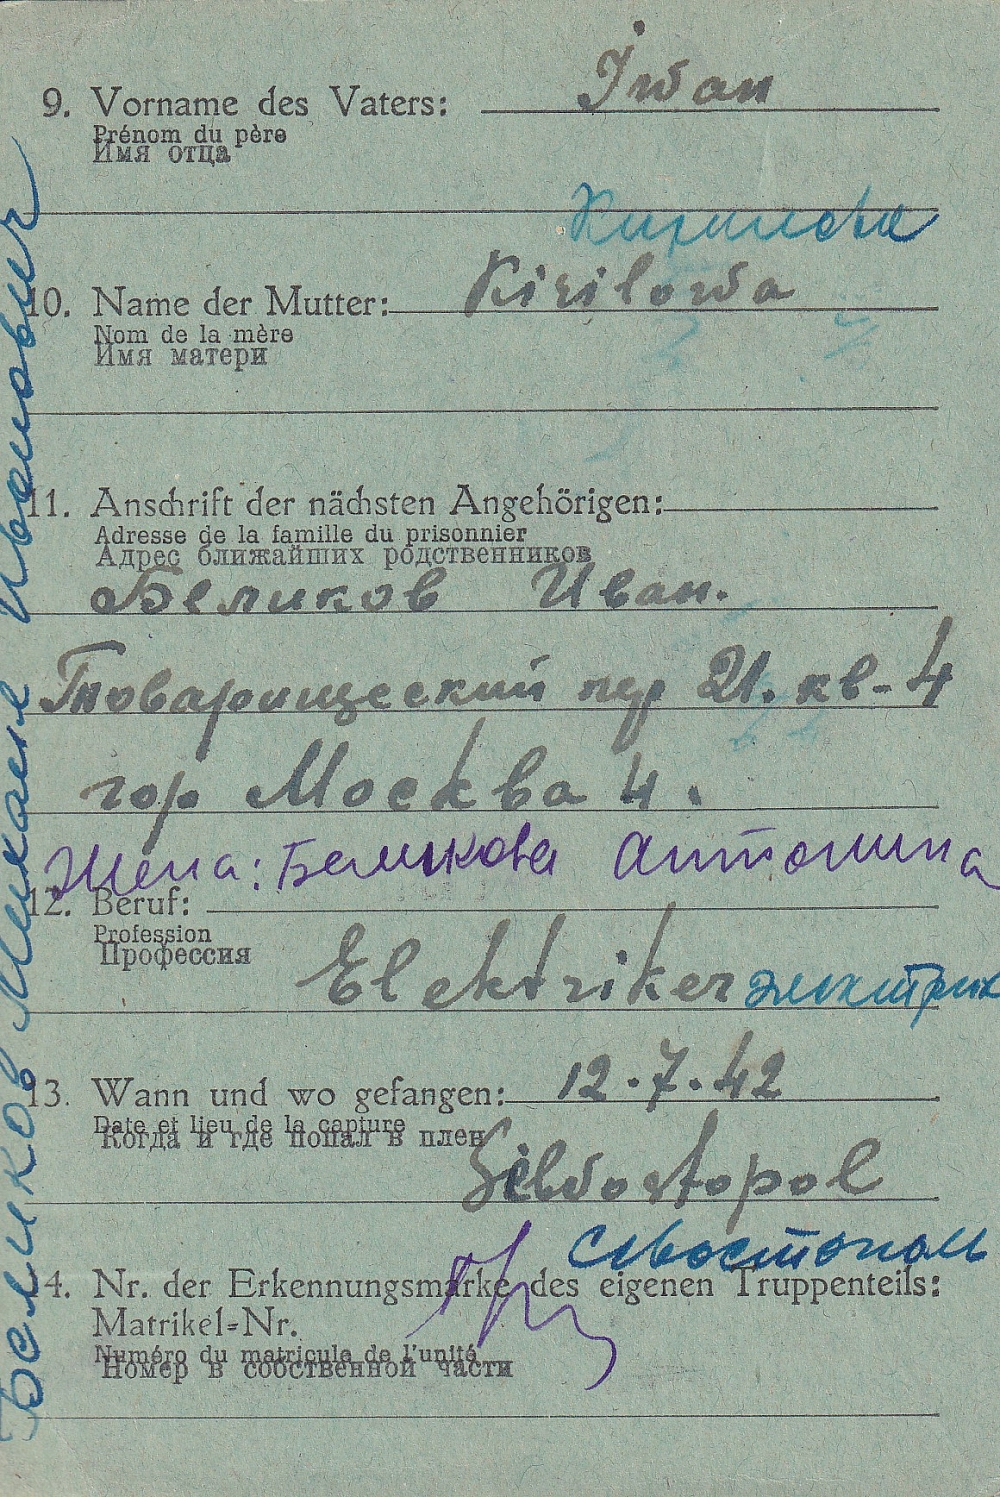 9. Vorname des Vaters: Iwan
Prénom du père
Имя отца
Кирилова
10. Name der Mutter: Kirilowa
Nom de la mère
Имя матери
11. Anschrift der nächsten Angehörigen:
Adresse de la famille du prisonnier
Адрес ближайших родственников
Беликов Иван.
Товарищеский пер 21. кв-4
гор Москва 4.
Жена: Беликова Антонина
12. Beruf:
Profession
Профессия
Elektriker электрик
13. Wann und wo gefangen: 12.7.42
Date et lieu de la capture
Когда и где попал в плен
Sewostopol
Севостополь
14. Nr. der Erkennungsmarke des eigenen Truppenteils:
Matrikel-Nr.
Numéro du matricule de l'unité
Номер в собственной части
Беликов Михаил Иванович